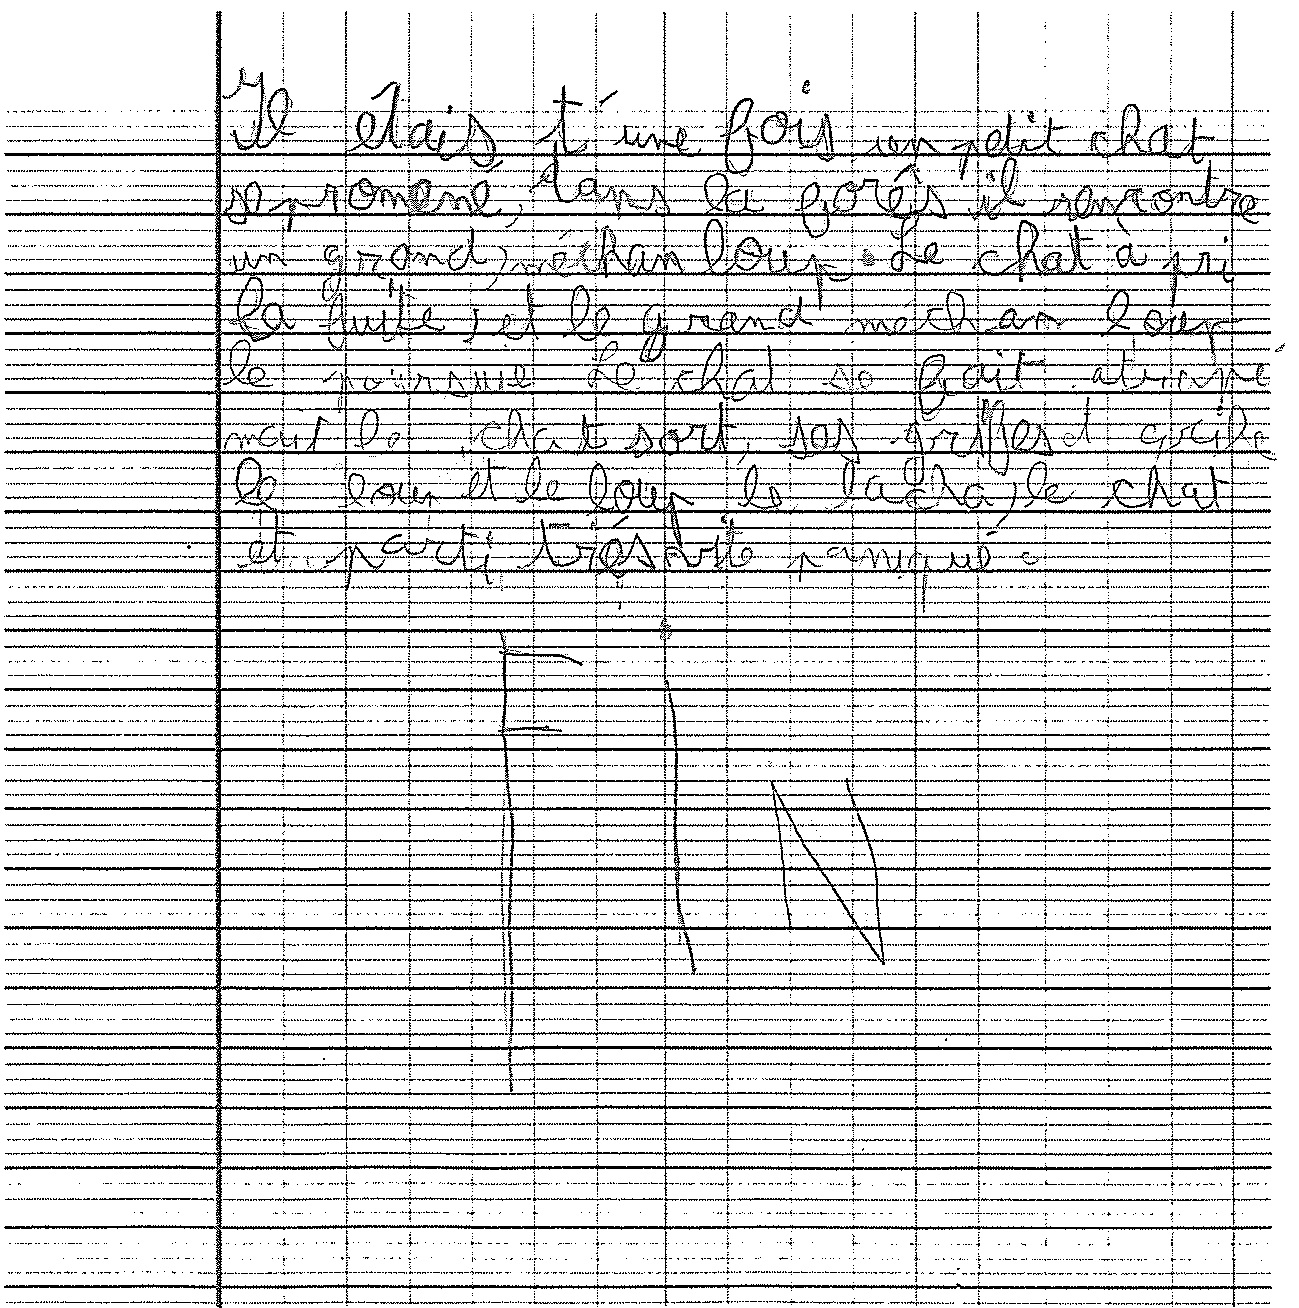 Il étais t'une fois un petit chat
se promené, dans la forêts il rencontre
un grand, méchan loup. Le chat à pri
la fuite, et le grand méchan loup
le poursuie Le chat se fait atrapé
mait le chat sort, ses griffes et grife
le loup et le loup le lacha, le chat
et parti très vite paniqué.
FIN